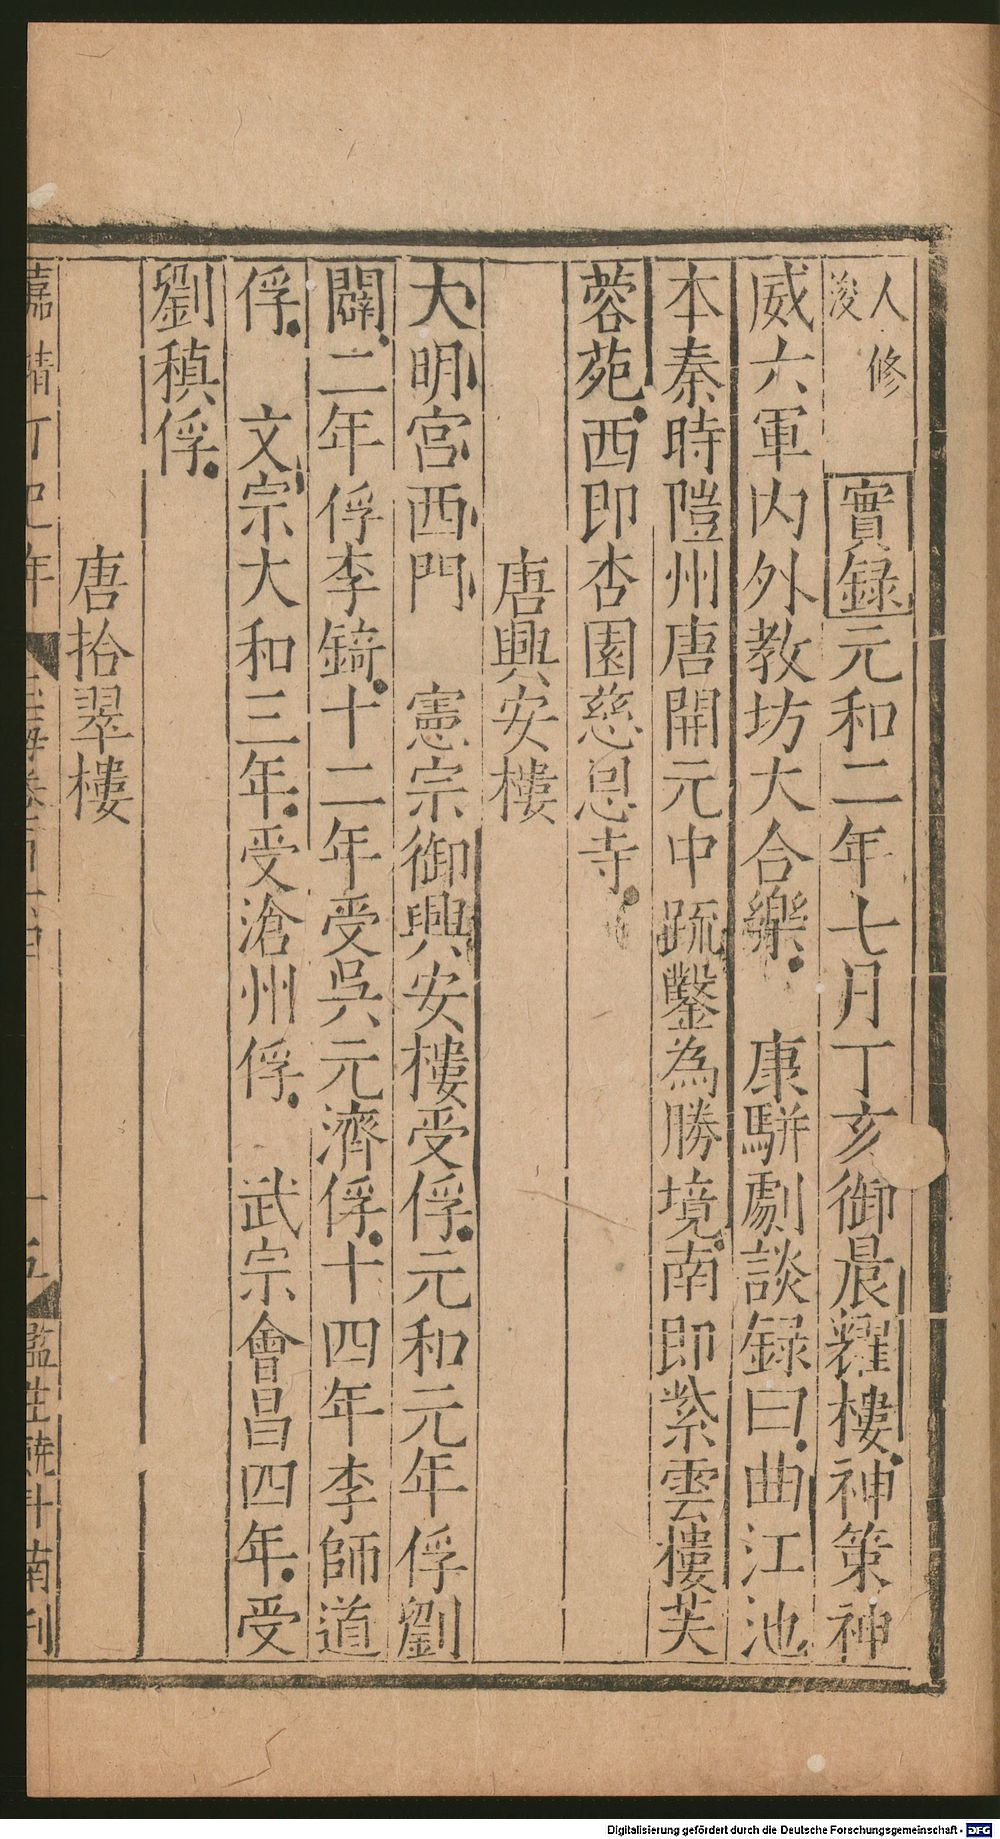 人修
浚
實録元和二年七月丁亥御晨耀樓神策神
威六軍内外教坊大合樂　康駢劇談録曰曲江池
本秦時隑州唐開元中疏鑿為勝境南即紫雲樓芙
蓉苑西即杏園慈恩寺
唐興安樓
大明宮西門　憲宗御興安樓受俘元和元年俘劉
闢二年俘李錡十二年受吳元濟俘十四年李師道
俘　文宗大和三年受滄州俘　武宗會昌四年受
劉稹俘
唐拾翠樓
嘉靖丁巳年　玉海卷百六十四　十五　監生 南刊
Digitalisierung gefördert durch die Deutsche Forschungsgemeinschaft - DFG